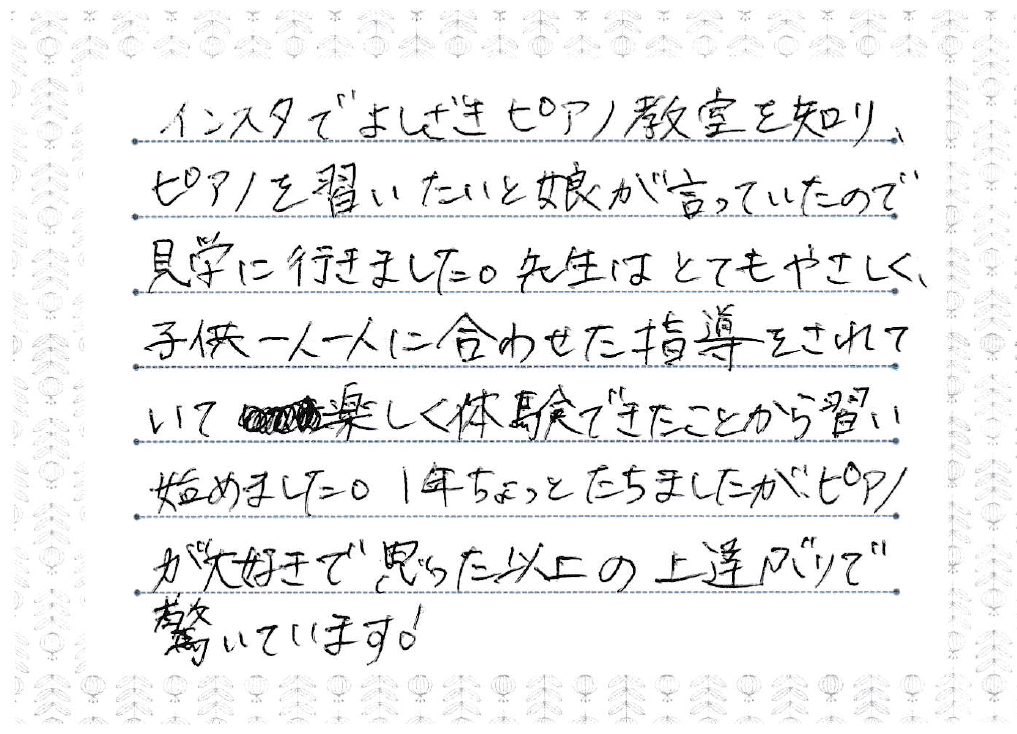 インスタでよしざきピアノ教室を知り、
ピアノを習いたいと娘が言っていたので
見学に行きました。先生はとてもやさしく、
子供一人一人に合わせた指導をされて
いて楽しく体験できたことから習い
始めました。1年ちょっとたちましたが、ピアノ
が大好きで思った以上の上達ぶりで
驚いています!